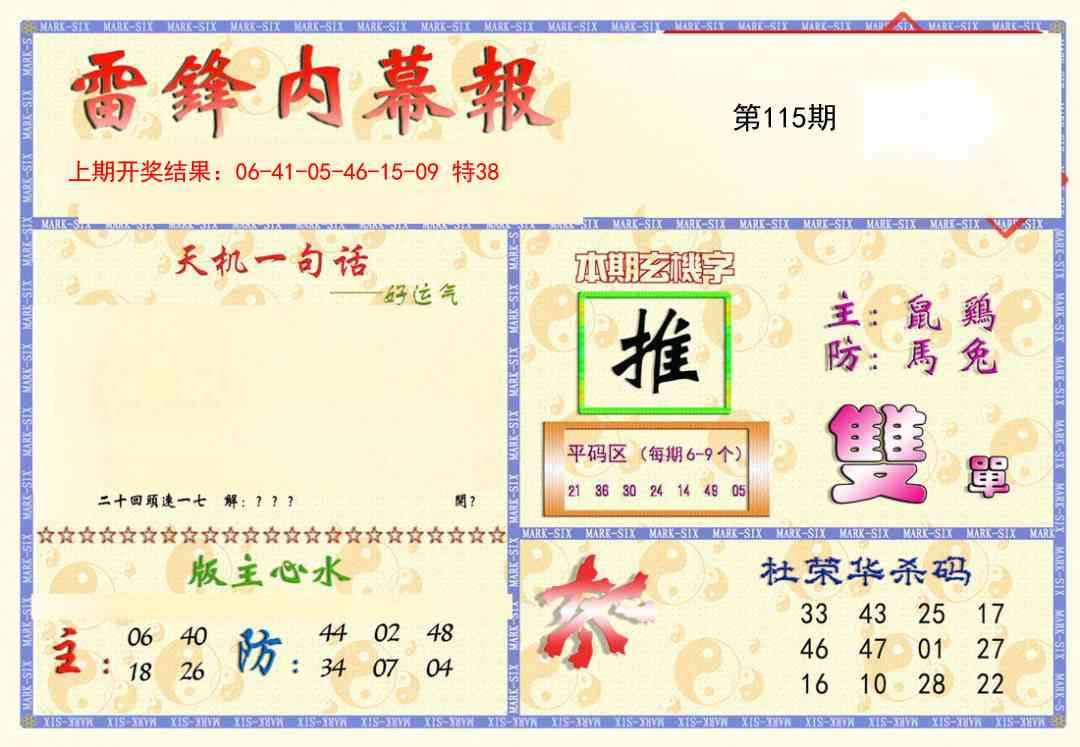 雷鋒内幕報
第115期
上期开奖结果：06-41-05-46-15-09 特38
天机一句话
——好运气
二十回頭速一七 解：？？？ 開？
版主心水
主： 06 40
18 26
防： 44 02 48
34 07 04
本期玄機字
推
主：鼠 鷄
防：馬 兔
平码区（每期6-9个）
21 36 30 24 14 49 05
雙 單
杜荣华杀码
33 43 25 17
46 47 01 27
16 10 28 22
MARK-SIX